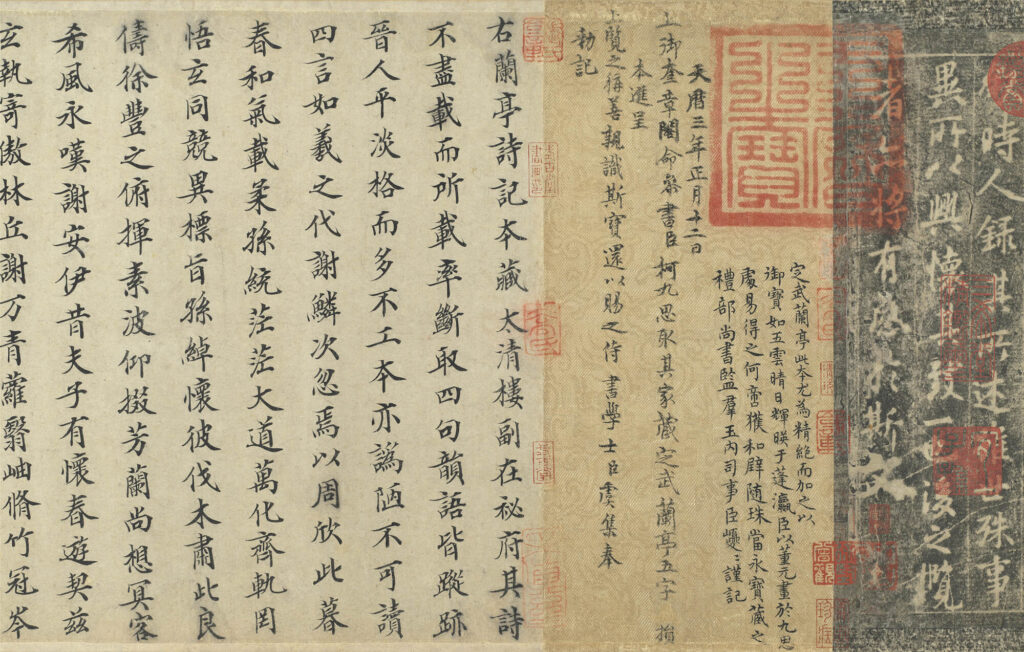 時人錄其所述雖世殊事
異所以興懷其致一也後之攬
者亦將有感於斯文
定武蘭亭此本尤為精絕而加之以
御寶如五雲晴日輝暎于蓬瀛臣以董元畫於九思
處易得之何啻獲和璧随珠當永寶藏之
禮部尚書監羣玉內司事臣巙々謹記
天曆三年正月十二日
上御奎章閣命參書臣柯九思取其家藏定武蘭亭五字損
本進呈
上覽之稱善親識斯寶還以賜之侍書學士臣虞集奉
勅記
右蘭亭詩記本藏大清樓副在秘府其詩
不盡載而所載率斷取四句韻語皆蹤跡
晉人平淡格而多不工本亦譌陋不可讀
四言如羲之代謝鱗次忽焉以周欣此暮
春和氣載柔孫統茫茫大道萬化齊軌罔
悟玄同競異標旨孫綽懷彼伐木肅此良
儔徐豐之俯揮素波仰掇芳蘭尚想冥客
希風永嘆謝安伊昔夫子有懷春遊契茲
玄執寄傲林丘謝万青蘿翳岫脩竹冠岑